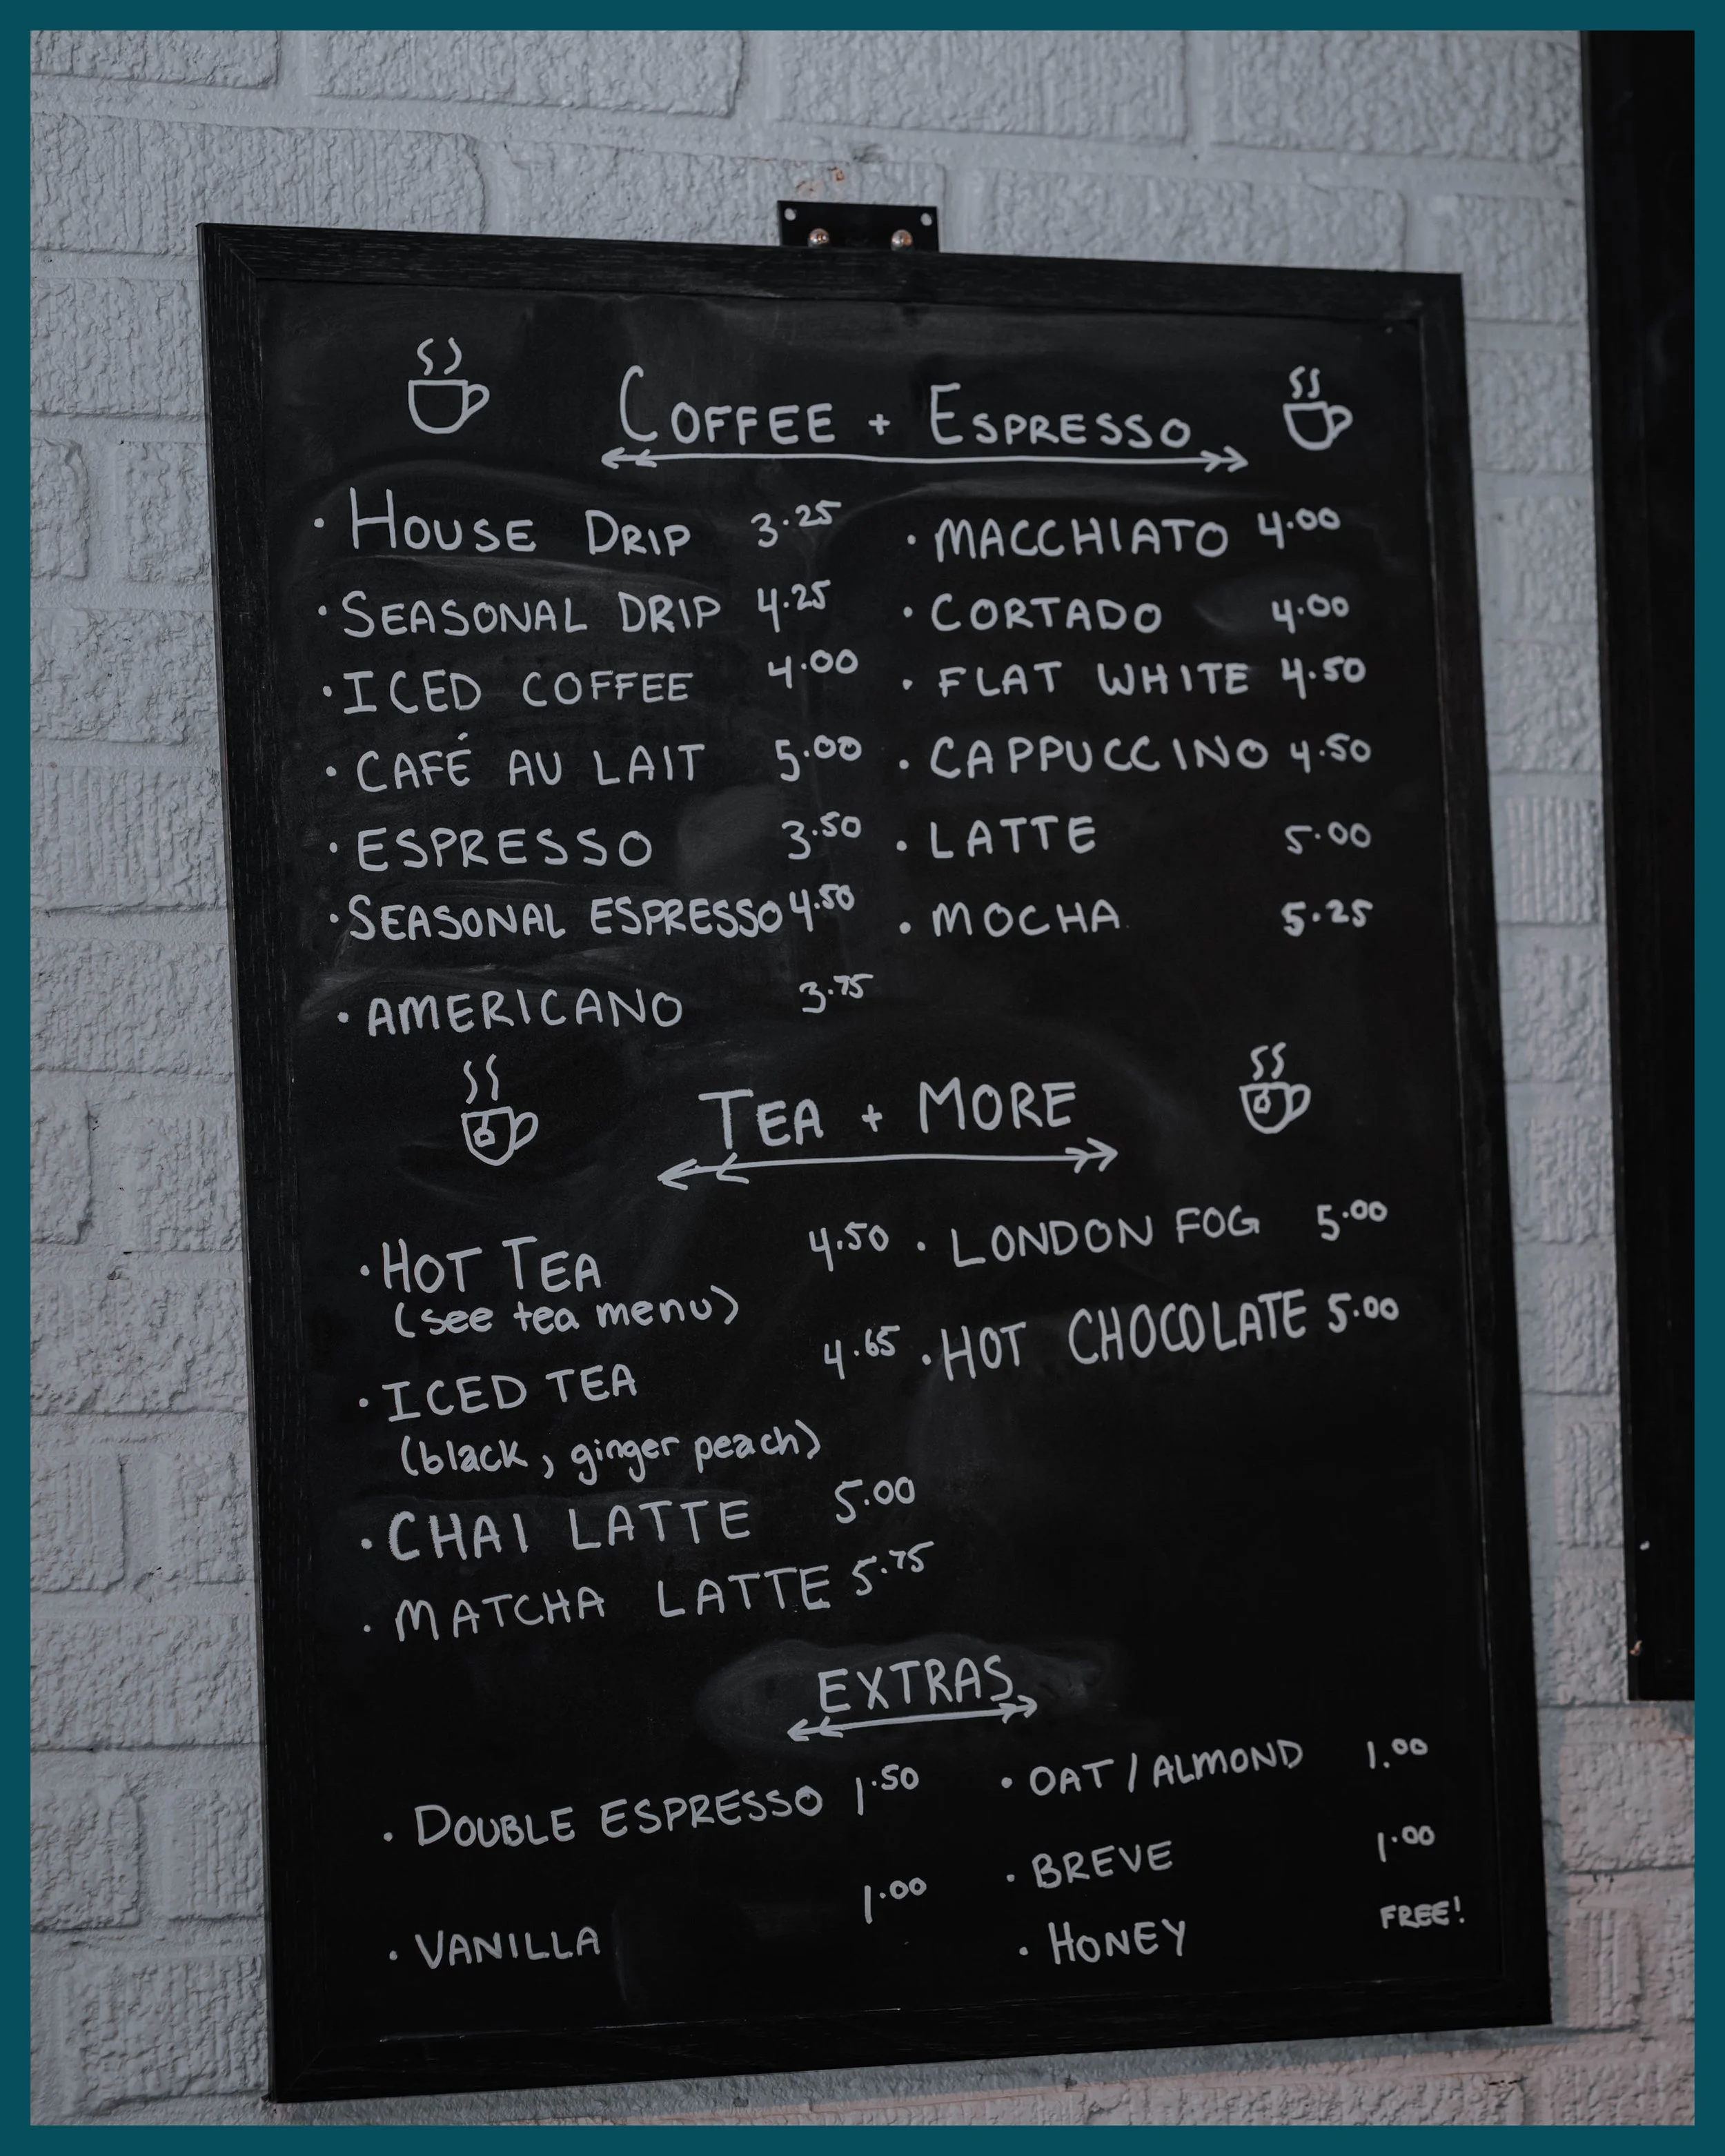 COFFEE + ESPRESSO
• HOUSE DRIP 3.25
• SEASONAL DRIP 4.25
• ICED COFFEE 4.00
• CAFÉ AU LAIT 5.00
• ESPRESSO 3.50
• SEASONAL ESPRESSO 4.50
• AMERICANO 3.75
• MACCHIATO 4.00
• CORTADO 4.00
• FLAT WHITE 4.50
• CAPPUCCINO 4.50
• LATTE 5.00
• MOCHA 5.25
TEA + MORE
• HOT TEA 4.50
(see tea menu)
• ICED TEA 4.65
(black, ginger peach)
• CHAI LATTE 5.00
• MATCHA LATTE 5.75
• LONDON FOG 5.00
• HOT CHOCOLATE 5.00
EXTRAS
• DOUBLE ESPRESSO 1.50
• VANILLA 1.00
• OAT / ALMOND 1.00
• BREVE 1.00
• HONEY FREE!